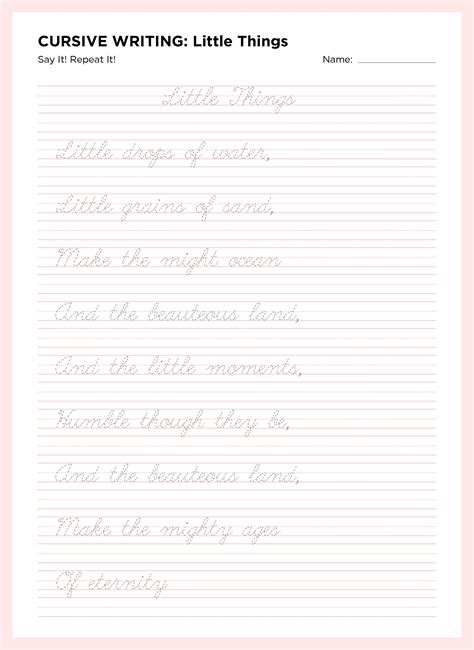 CURSIVE WRITING: Little Things
Say It! Repeat It!
Name:
Little Things
Little drops of water,
Little grains of sand,
Make the might ocean
And the beauteous land,
And the little moments,
Humble though they be,
And the beauteous land,
Make the mighty ages
Of eternity